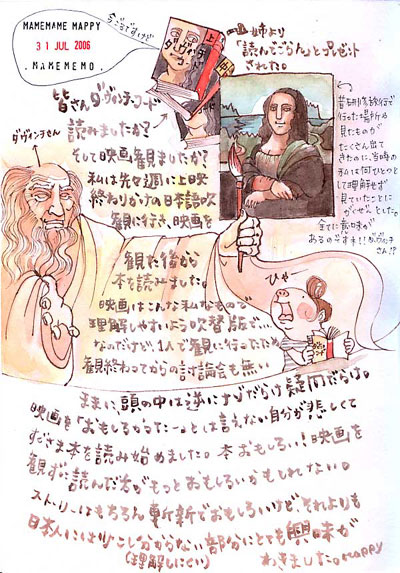 MAMEMAME MAPPY
31 JUL 2006
.MAMEMEMO.
いまごろですけど
上
中
ダヴィンチ
コード
姉より
「読んでごらん」とプレゼント
された。
皆さん、ダ・ヴィンチ・コード
読みましたか?
そして映画観ましたか?
私は先々週に上映
終わりかけの日本語吹
替版を
観に行き、映画を
観た後から
本を読みました。
映画はこんな私なもので
理解しやすいよう吹替版で…
なのだけど、1人で観に行ったため
観終わってからの討論会も無い
ダ・ヴィンチさん
昔研修旅行で
行った場所や
見たものが
たくさん出て
きたのに、当時の
私は何ひとつと
して理解せず
見ていたことに
がくぜんとした。
全てに意味が
あるのですネ!!ダ・ヴィンチ
さん!?
ひゃー
ままに、頭の中は逆にナゾだらけ疑問だらけ。
映画を「おもしろかったー。」とは言えない自分が悲しくて
すぐさま本を読み始めました。本おもしろい!映画を
観ずに読んだ方がもっとおもしろいかもしれない。
ストーリーはもちろん斬新でおもしろいけど、それよりも
日本人には少し分からない部分にとても興味が
(理解しにくい)
わきました。mappy